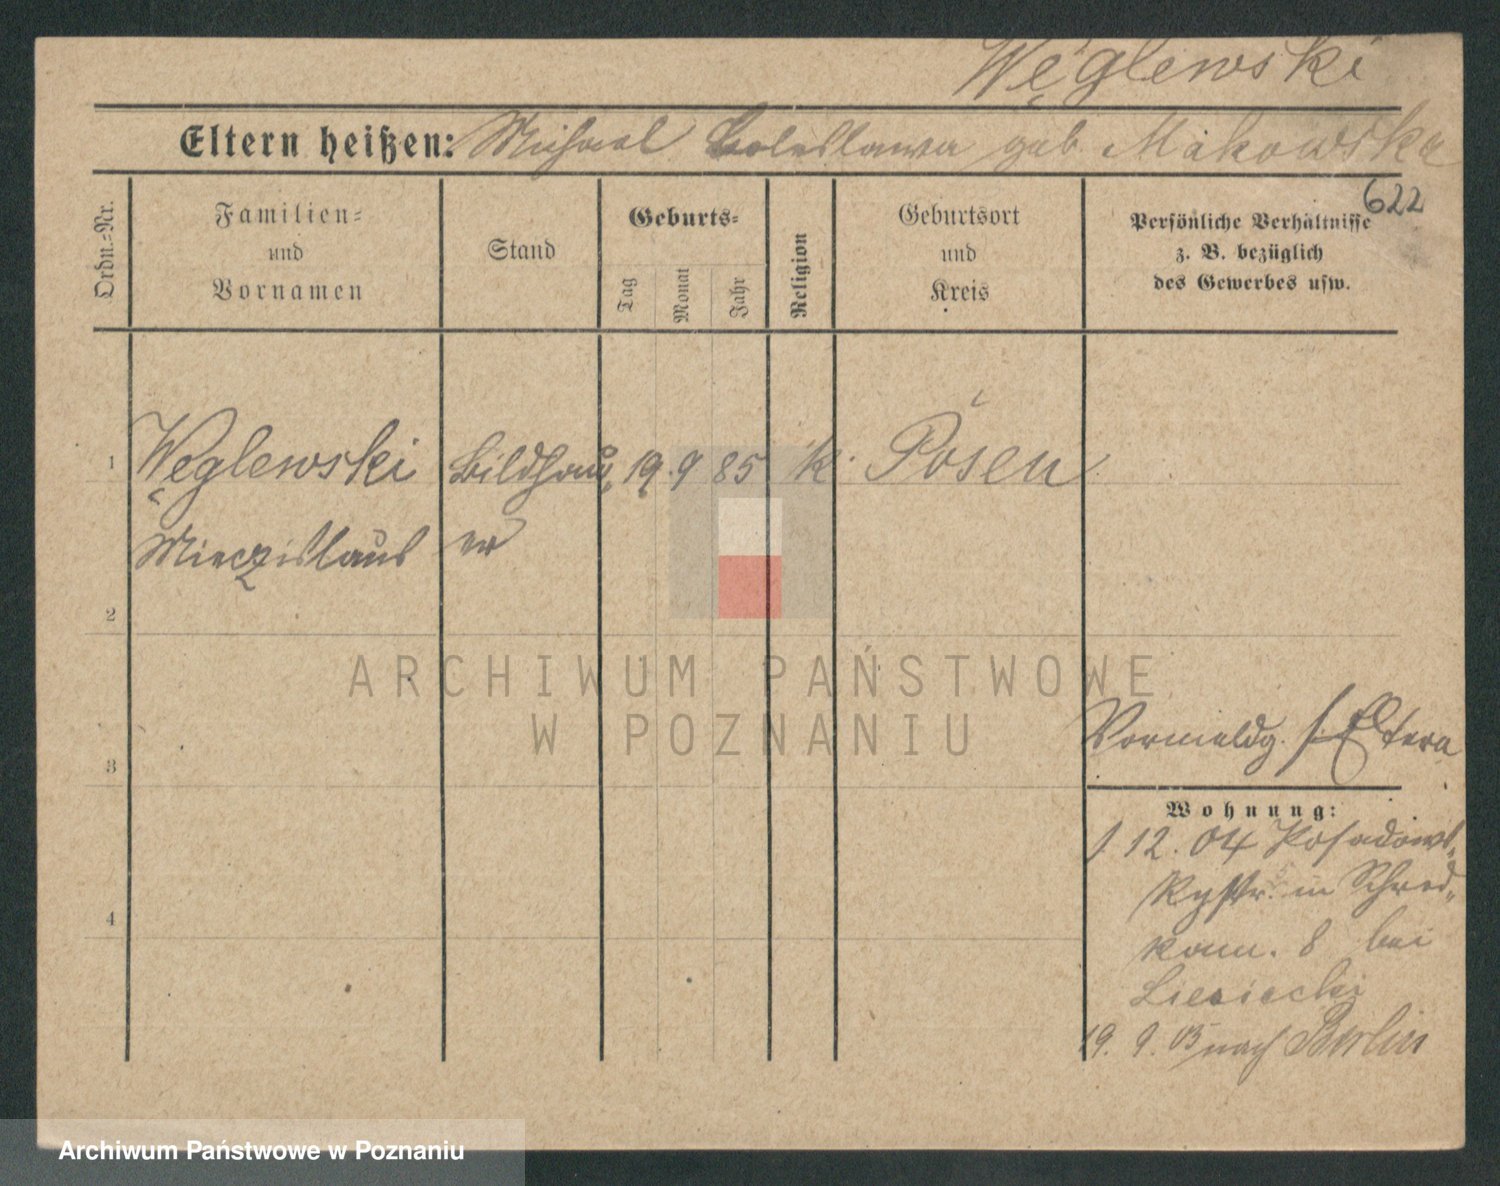 Węglewski
Eltern heißen: Michael Boleslawa geb Makowska
622
Ordn.-Nr.
Familien-
und
Vornamen
Stand
Geburts-
Tag
Monat
Jahr
Religion
Geburtsort
und
Kreis
Persönliche Verhältnisse
z. B. bezüglich
des Gewerbes usw.
1 Węglewski Bildhau- 19. 9 85 k. Posen
Mieczislaus er
2
ARCHIWUM PAŃSTWOWE
W POZNANIU
Vormeldg. s. Eltern
3
Wohnung:
1 12. 04 Posadows-
kystr. in
4
8 bei
19. 9. 05 nach Berlin
Archiwum Państwowe w Poznaniu